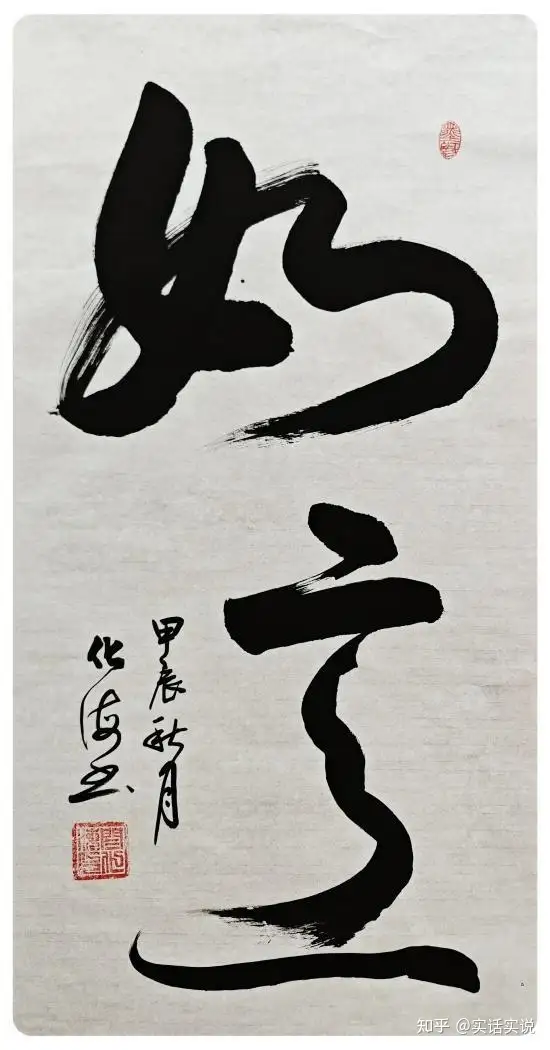 如意
甲辰秋月
化海书
知乎 @实话实说